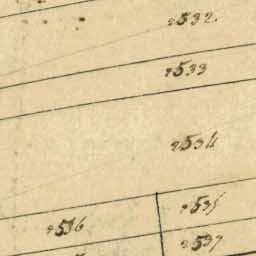 2532
2533
2534
2535
2536
2537